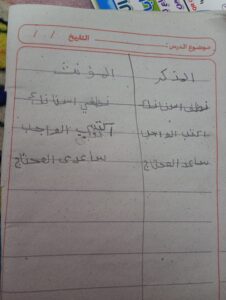 موضوع الدرس: التاريخ / /
المذكر المؤنث
نظف اسنانك نظفي اسنانك
اكتب الواجب اكتبي الواجب
ساعد المحتاج ساعدي المحتاج